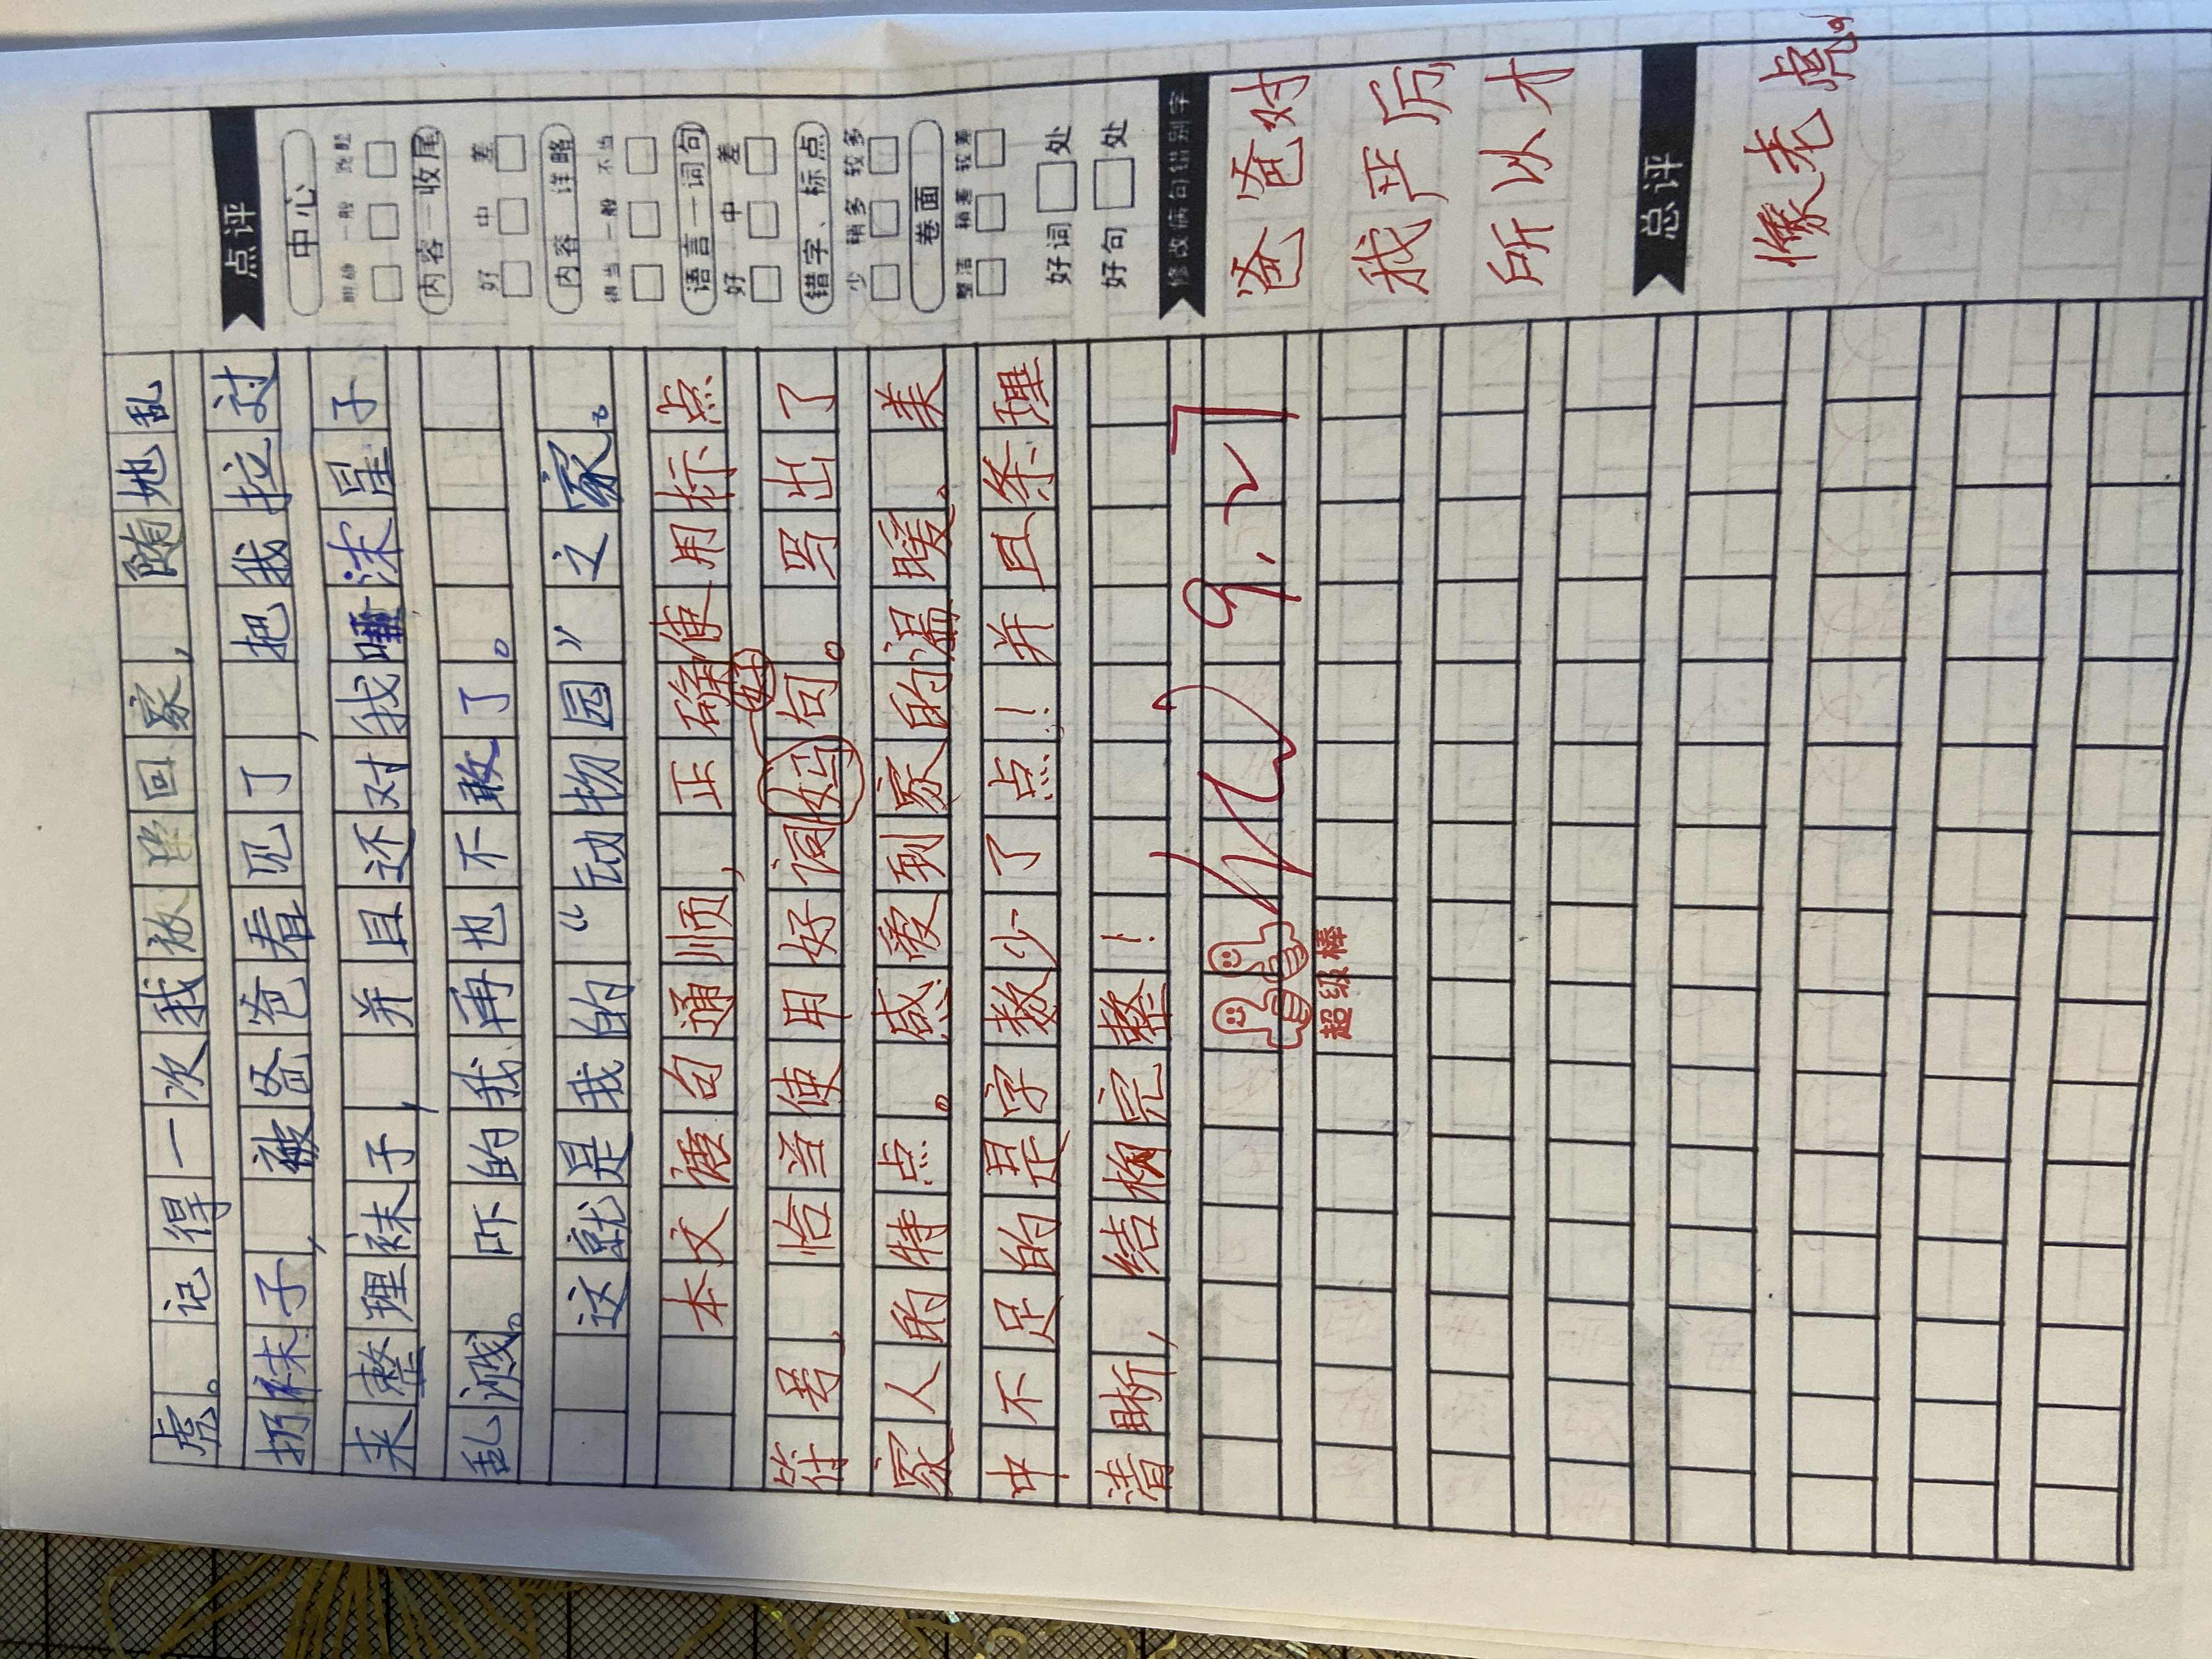 虎。记得一次我放学回家，随地乱
扔袜子，被爸爸看见了，把我拉过
来整理袜子，并且还对我唾沫星子
乱溅。吓的我再也不敢了。
这就是我的“动物园”之家。
本文语句通顺，正确使用标点
符号，恰当使用好词好句。写出了
家人的特点。感受到家的温暖。美
中不足的是字数少了点！并且条理
清晰，结构完整！
9.27
超级棒
点评
中心
明确 一般
内容—收尾
好 中 差
内容 详略
得当 一般 不当
语言—词句
好 中 差
错字、标点
少 稍多 较多
卷面
整洁 稍差 较差
好词 处
好句 处
修改病句错别字
爸爸对
我严厉
所以才
总评
像老虎。